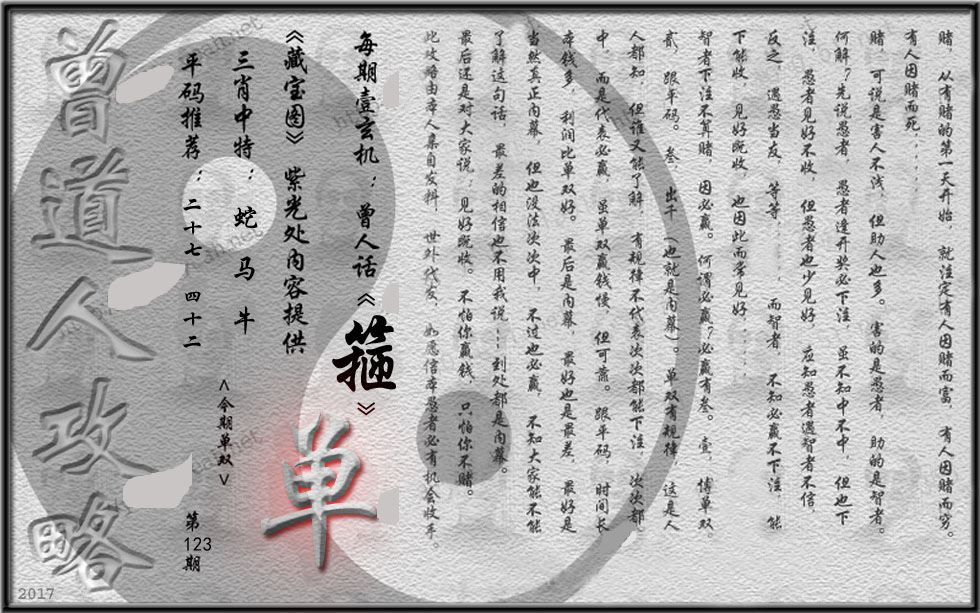 赌，从有赌的第一天开始，就注定有人因赌而富，有人因赌而穷。
有人因赌而死......
赌，可说是害人不浅，但助人也多。害的是愚者，助的是智者。
何解？先说愚者，愚者逢开奖必下注，虽不知中不中，但也下
注，愚者见好不收，但愚者也少见好，应知愚者遇智者不信，
反之，遇愚当友，等等......而智者，不知必赢不下注，能
下能收，见好既收，也因此而常见好......
智者下注不算赌，因必赢。何谓必赢？必赢有叁。壹，博单双。
贰，跟平码。叁，出千（也就是内幕）。单双有规律，这是人
人都知，但谁又能了解，有规律不代表次次都能下注，次次都
中，而是代表必赢，虽单双赢钱慢，但可靠。跟平码，时间长，
本钱多，利润比单双好。最后是内幕，最好也是最差，最好是
当然真正内幕，但也没法次次中，不过也必赢，不知大家能不能
了解这句话，最差的相信也不用我说---到处都是内幕。
最后还是对大家说：见好既收。不怕你赢钱，只怕你不赌。
此攻略由本人集自发料，世外代友，如愿信本愚者必有机会收手。
每期壹玄机：曾人话《箍》
《藏宝图》紫光处内容提供
单
三肖中特：蛇 马 牛
<今期单双>
平码推荐：二十七 四十二
第123期
曾道人攻略
2017